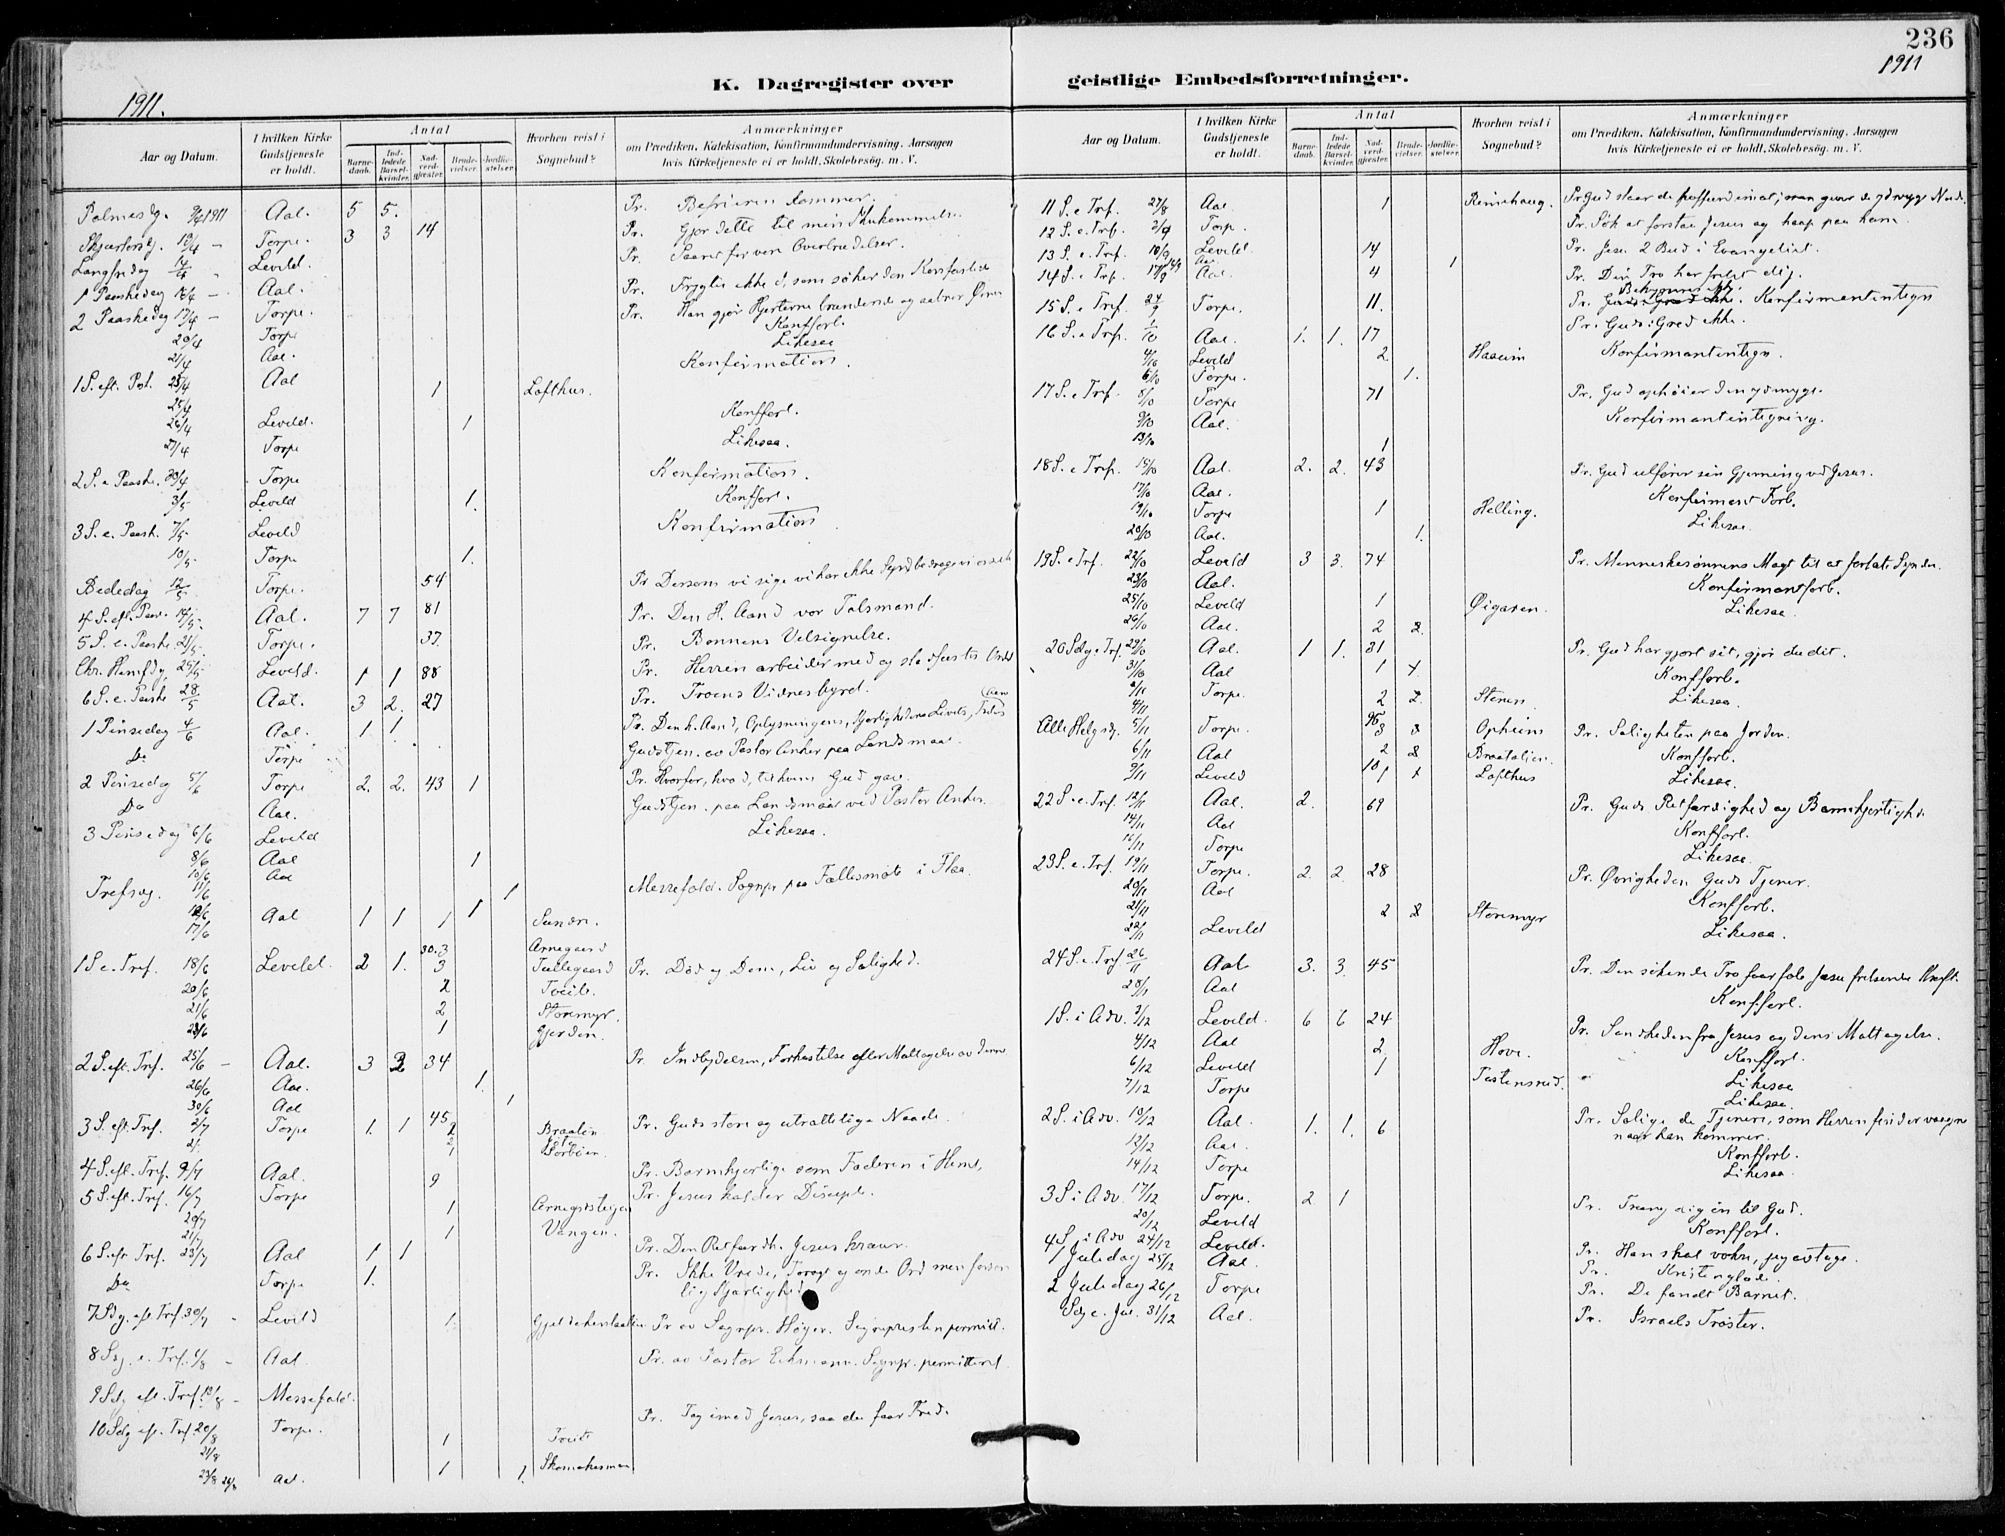 236
1911.
K. Dagregister over
geistlige Embedsforretninger.
1911
Aar og Datum.
I hvilken Kirke Gudstjeneste er holdt.
Antal
Barnedaab.
Indledede Barselkvinder.
Nadverdgjester.
Brudevielser.
Jordfæstelser.
Hvorhen reist i Sognebud?
Anmærkninger
om Prædiken, Katekisation, Konfirmandundervisning, Aarsagen
hvis Kirketjeneste ei er holdt, Skolebesög. m. V.
Palmesdg. 9/4 1911 Aal. 5 5. Pr. Befrieren kommer.
Skjærtorsdg. 13/4 Torpe. 3 3 14 Pr. Gjør dette til min Ihukommelse.
Langfredag 14/4 Leveld. Pr. Saaret for vore Overtrædelser.
1 Paaskedag 16/4 Aal. Pr. Frygter ikke I, som søker den Korsfæstede
2 Paaskedag 17/4 Torpe. Pr. Han gjør Hjerterne brændende og aabner Øinene
20/4 Torpe Konfforb.
21/4 Aal. Likesaa
1 S. eft. Paa. 23/4 Aal Konfirmation.
25/4 1 Lofthus.
26/4 Leveld. 1 Konfforb.
27/4 Torpe Likesaa.
2 S. e. Paaske. 30/4 Torpe Konfirmation.
3/5 Leveld 1. Konfforb.
3 S. e. Paask. 7/5 Leveld Konfirmation
10/5 Torpe 1.
Bededag 12/5 Torpe. 54 Pr Dersom vi sige vi har ikke Synd bedrage vi os selv
4 S. eft. Paas. 14/5 Aal. 7 7 81 Pr. Den H. Aand vor Talsmand.
5 S. e. Paaske 21/5 Torpe. 37 Pr. Bønnens Velsignelse.
Chr. Himlfdg. 25/5 Leveld. 1 1 88 Pr. Herren arbeider med og stadfæster Ordet
6 S. e. Paaske 28/5 Aal. 3 2. 27 Pr. Troens Vidnesbyrd.
1 Pinsedag 4/6 Aal. 1 1 Pr. Den h. Aand, Oplysningens, Kjærlighedens, Livets, Fredens Aand
Do Torpe Gudstjen. av Pastor Anker paa Landsmaal.
2 Pinsedag 5/6 Torpe 2. 2. 43 1 Pr. Hvorfor, hvad, til hvem Gud gav.
Do Aal. Gudstjen. paa Landsmaal ved Pastor Anker.
3 Pinsedag 6/6 Leveld Likesaa.
8/6 Aal 1
10/6 Aal
Trefsdg. 11/6 1 Messefald. Sognepr. paa Fællesmøte i Flaa.
12/6 Aal 1 1 1 1 Sundre.
17/6
30. 3 Arnegaard
1 S e. Tref. 18/6 Leveld. 2 1. 3 Tullegaard Pr. Død og Dom, Liv og Salighed.
20/6 2 Tveito.
21/6 2 Storemyr.
23/6 1 Gjerden.
2 S. eft. Tref. 25/6 Aal. 3 2 34 Pr Indbydelsen, Forkastelse eller Mottagelse av denne
26/6 Aal. 1
30/6 Aal 1
3 S. eft. Tref. 2/7 Torpe 1. 1 45 Braaten Pr. Guds store og utrættelige Naade.
4 S. eft. Tref. 9/7 Aal. 9 Pr. Barmhjertige som Faderen i Himl.
5 S. eft. Tref. 16/7 Torpe Pr. Jesus kalder Disciple.
20/7 1
21/7 1 Vangen.
6 S. eft Tref. 23/7 Aal 1 1 Pr. Den Retfærdh. Jesus kræver.
Do Torpe 1. Pr. Ikke Vrede, Foragt og onde Ord men forsonlig Kjærlighed.
7 Sdg. eft. Tref. 30/7 Leveld 1. Pr av Sognpr. Høyer. Sognepresten permitt.
8 Sdg. e. Tref. 6/8 Aal. Pr. av Pastor Eckmann. Sognpr. permitteret
9 Sdg eft. Tref. 13/8 Messefald.
10 Sdg eft. Tref. 20/8 Torpe. Pr. Tag imod Jesus, saa du faar Fred.
21/8 1 Tveito
23/8 1 1. Skomakermoen
Aal.
Aar og Datum.
I hvilken Kirke Gudstjeneste er holdt.
Antal
Barnedaab.
Indledede Barselkvinder.
Nadverdgjester.
Brudevielser.
Jordfæstelser.
Hvorhen reist i Sognebud?
Anmærkninger
om Prædiken, Katekisation, Konfirmandundervisning, Aarsagen
hvis Kirketjeneste ei er holdt, Skolebesög. m. V.
11 S. e Tref. 27/8 Aal 1 Reinehaug. Pr. Gud staar de hoffærdige imot, man giver de ydmyge Naade.
12 S. e. Tref. 3/9 Torp. Pr. Søk at forstaa Jesus og haap paa ham.
13 S. e. Tref. 10/9 Leveld 14 Pr. Jesu 2 Bud i Evangeliet.
14/9 Aal 1
14 S. e Tref. 17/9 Aal. 4 Pr. Din Tro har frelst dig.
15 S. e Tref. 24/9 Torpe. 11. Pr. Bekymrer ikke. Konfirmantinteg
16 S. e Tref. 1/10 Aal. 1. 1. 17 Pr. Guds: Græd ikke.
4/10 Leveld 2. Haaeim Konfirmantintegn.
6/10 Torpe. 1.
17 S. e Tref. 8/10 Torpe 71 Pr. Gud ophøier den ydmyge.
9/10 Aal. Konfirmantintegning.
13/10 1
18 S. e Tref. 15/10 Aal. 2. 2. 43 Pr. Gud utfører sin Gjerning ved Jesus.
17/10 Aal. Konfirmant Forb.
19/10 Torpe 1 Helling. Likesaa.
20/10 Aal. 1.
19 S. e Tref. 22/10 Leveld 3 3. 74 Pr. Menneskesønnens Magt til at forlate Synder.
23/10 Aal. Konfirmantforb.
25/10 Leveld 1 Øigaren. Likesaa
26/10 Aal. 2 2.
20 Sdg. e Tref. 29/10 Aal. 1 1. 31 Pr. Gud har gjort sit, gjør du dit.
31/10 Aal 1 Konfforb.
2/11 Torpe. 2 Likesaa.
4/11 Stenen
Alle Helgsdg. 5/11 Torpe. 95 3 Opheim Pr. Saligheten paa Jorden.
6/11 Aal 2 Braatalien. Konfforb.
9/11 Leveld 10 1 Lofthus Likesaa
22 S. e. Tref. 12/11 Aal. 2. 69 Pr. Guds Retfærdighed og Barmhjertighed.
14/11 Aal Konfforb.
16/11 Torpe Likesaa
23 S. e. Tref. 19/11 Torpe. 2. 2. 28 Pr. Øvrigheden Guds Tjener.
20/11 Aal Konfforb.
21/11 2 Storemyr
22/11 Leveld Likesaa.
24 S. e. Tref 26/11 Aal 3. 3. 45 Pr. Den søkende Tro faar føle Jesu frelsende Kraft.
28/11 Aal Konfforb.
1 S. i Adv. 3/12 Leveld. 6 6 24 Pr. Sandheden fra Jesus og dens Mottagelse.
4/12 Aal 2 Hove. Konfforb.
6/12 Leveld 1 Torstensrud. Likesaa
7/12 Torpe Likesaa.
2 S. i Adv. 10/12 Aal. 1. 1. 6 Pr. Salige de Tjenere, som Herren finder vaagne
naar han kommer.
12/12 Aal. Konfforb.
14/12 Torpe Likesaa
3 S i Adv. 17/12 Torpe. 2 1 Pr. Træng dig ind til Gud.
20/12 Leveld Konfforb.
4 S. i Adv 24/12 Leveld. Pr. Han skal vokse, jeg avtage.
1 Juledag 25/12 Aal Pr. Kristenglæde.
2 Juledag 26/12 Torpe Pr. De fandt Barnet.
Sdg e. Jul. 31/12 Aal. Pr. Israels Trøster.